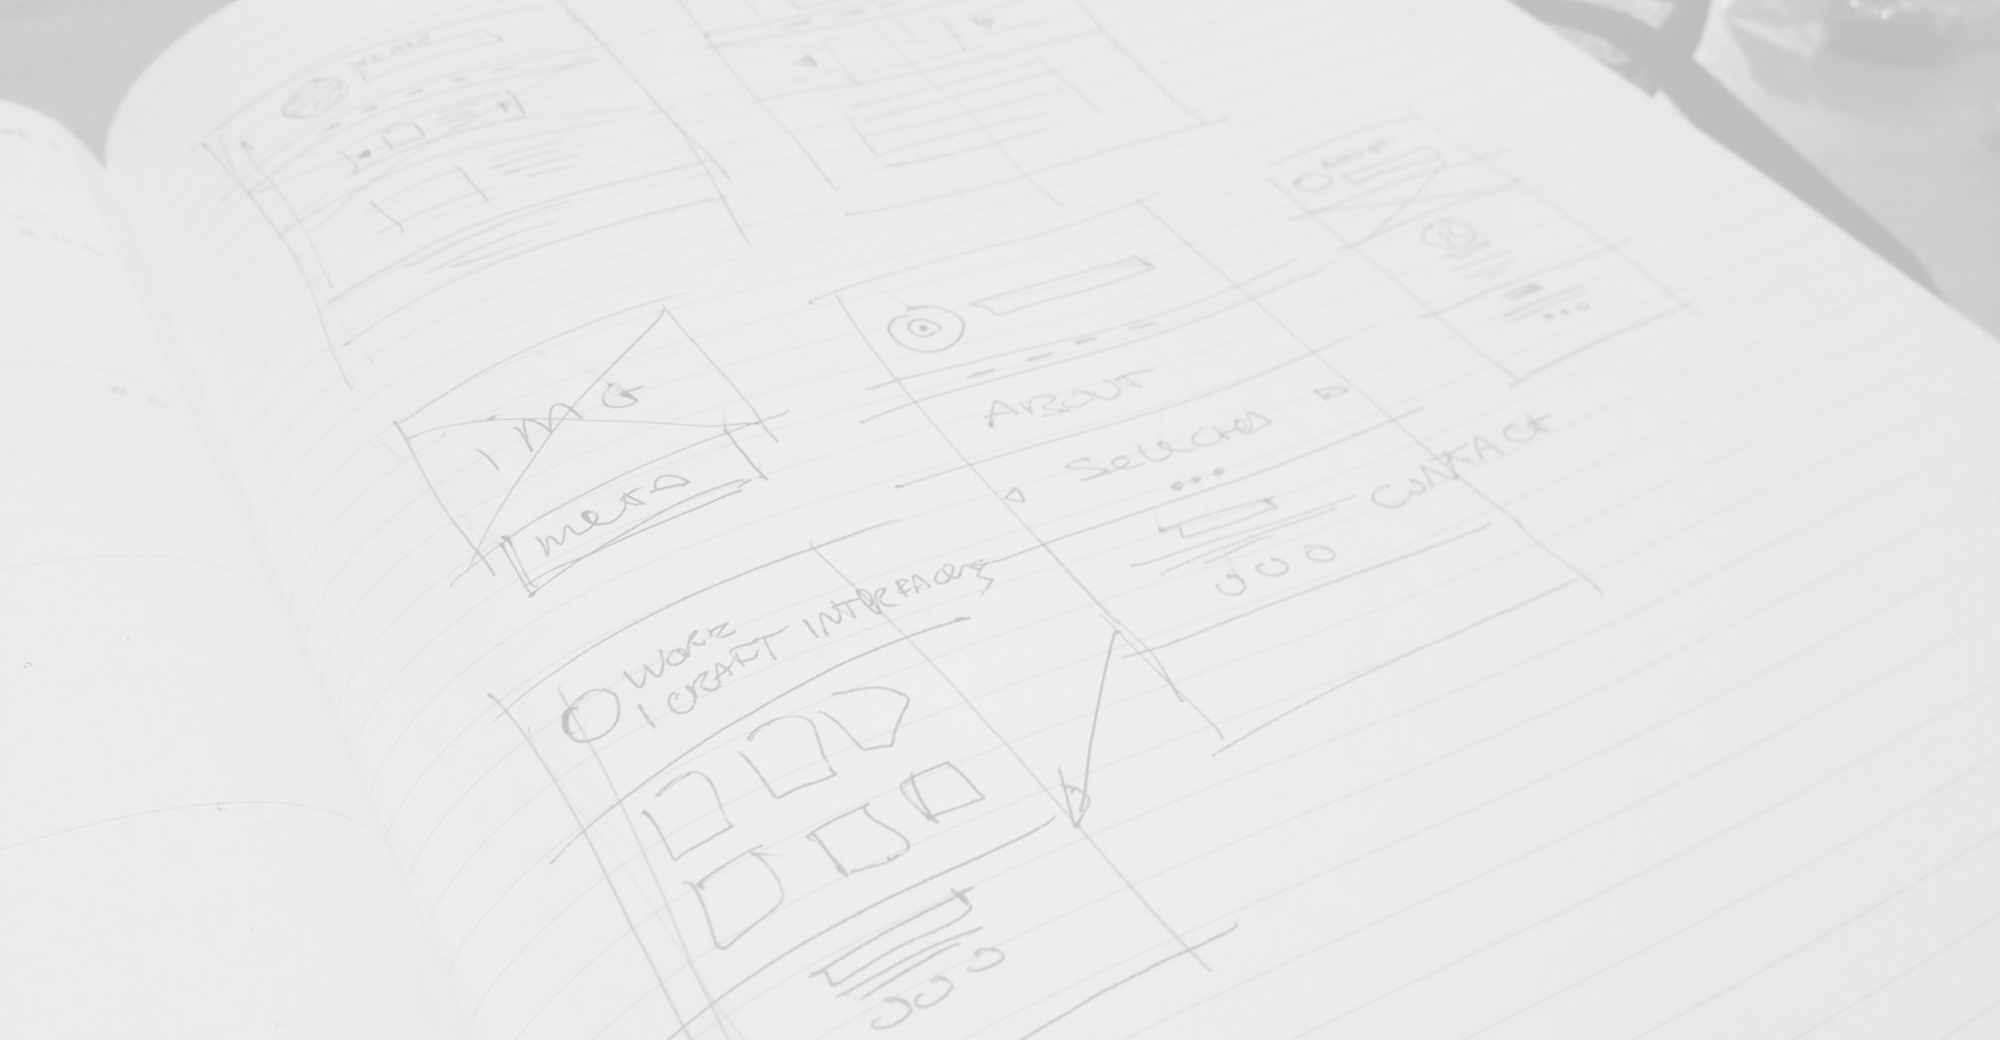 IMG
META
ABOUT
SELECTED
CONTACT
WORK
I CRAFT INTERFACES